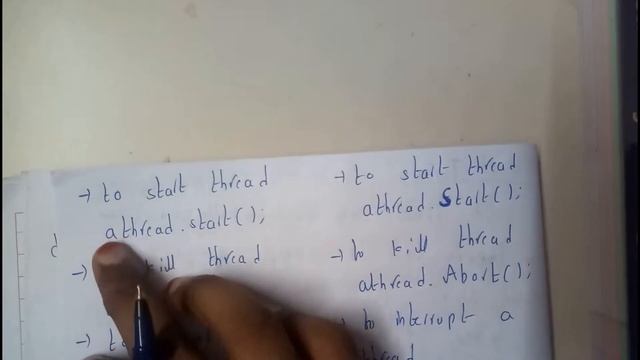 → to start thread
athread.start();
→ kill thread
→ t
→ to start thread
athread.Start();
→ to kill thread
athread.Abort();
→ to interrupt a
thread